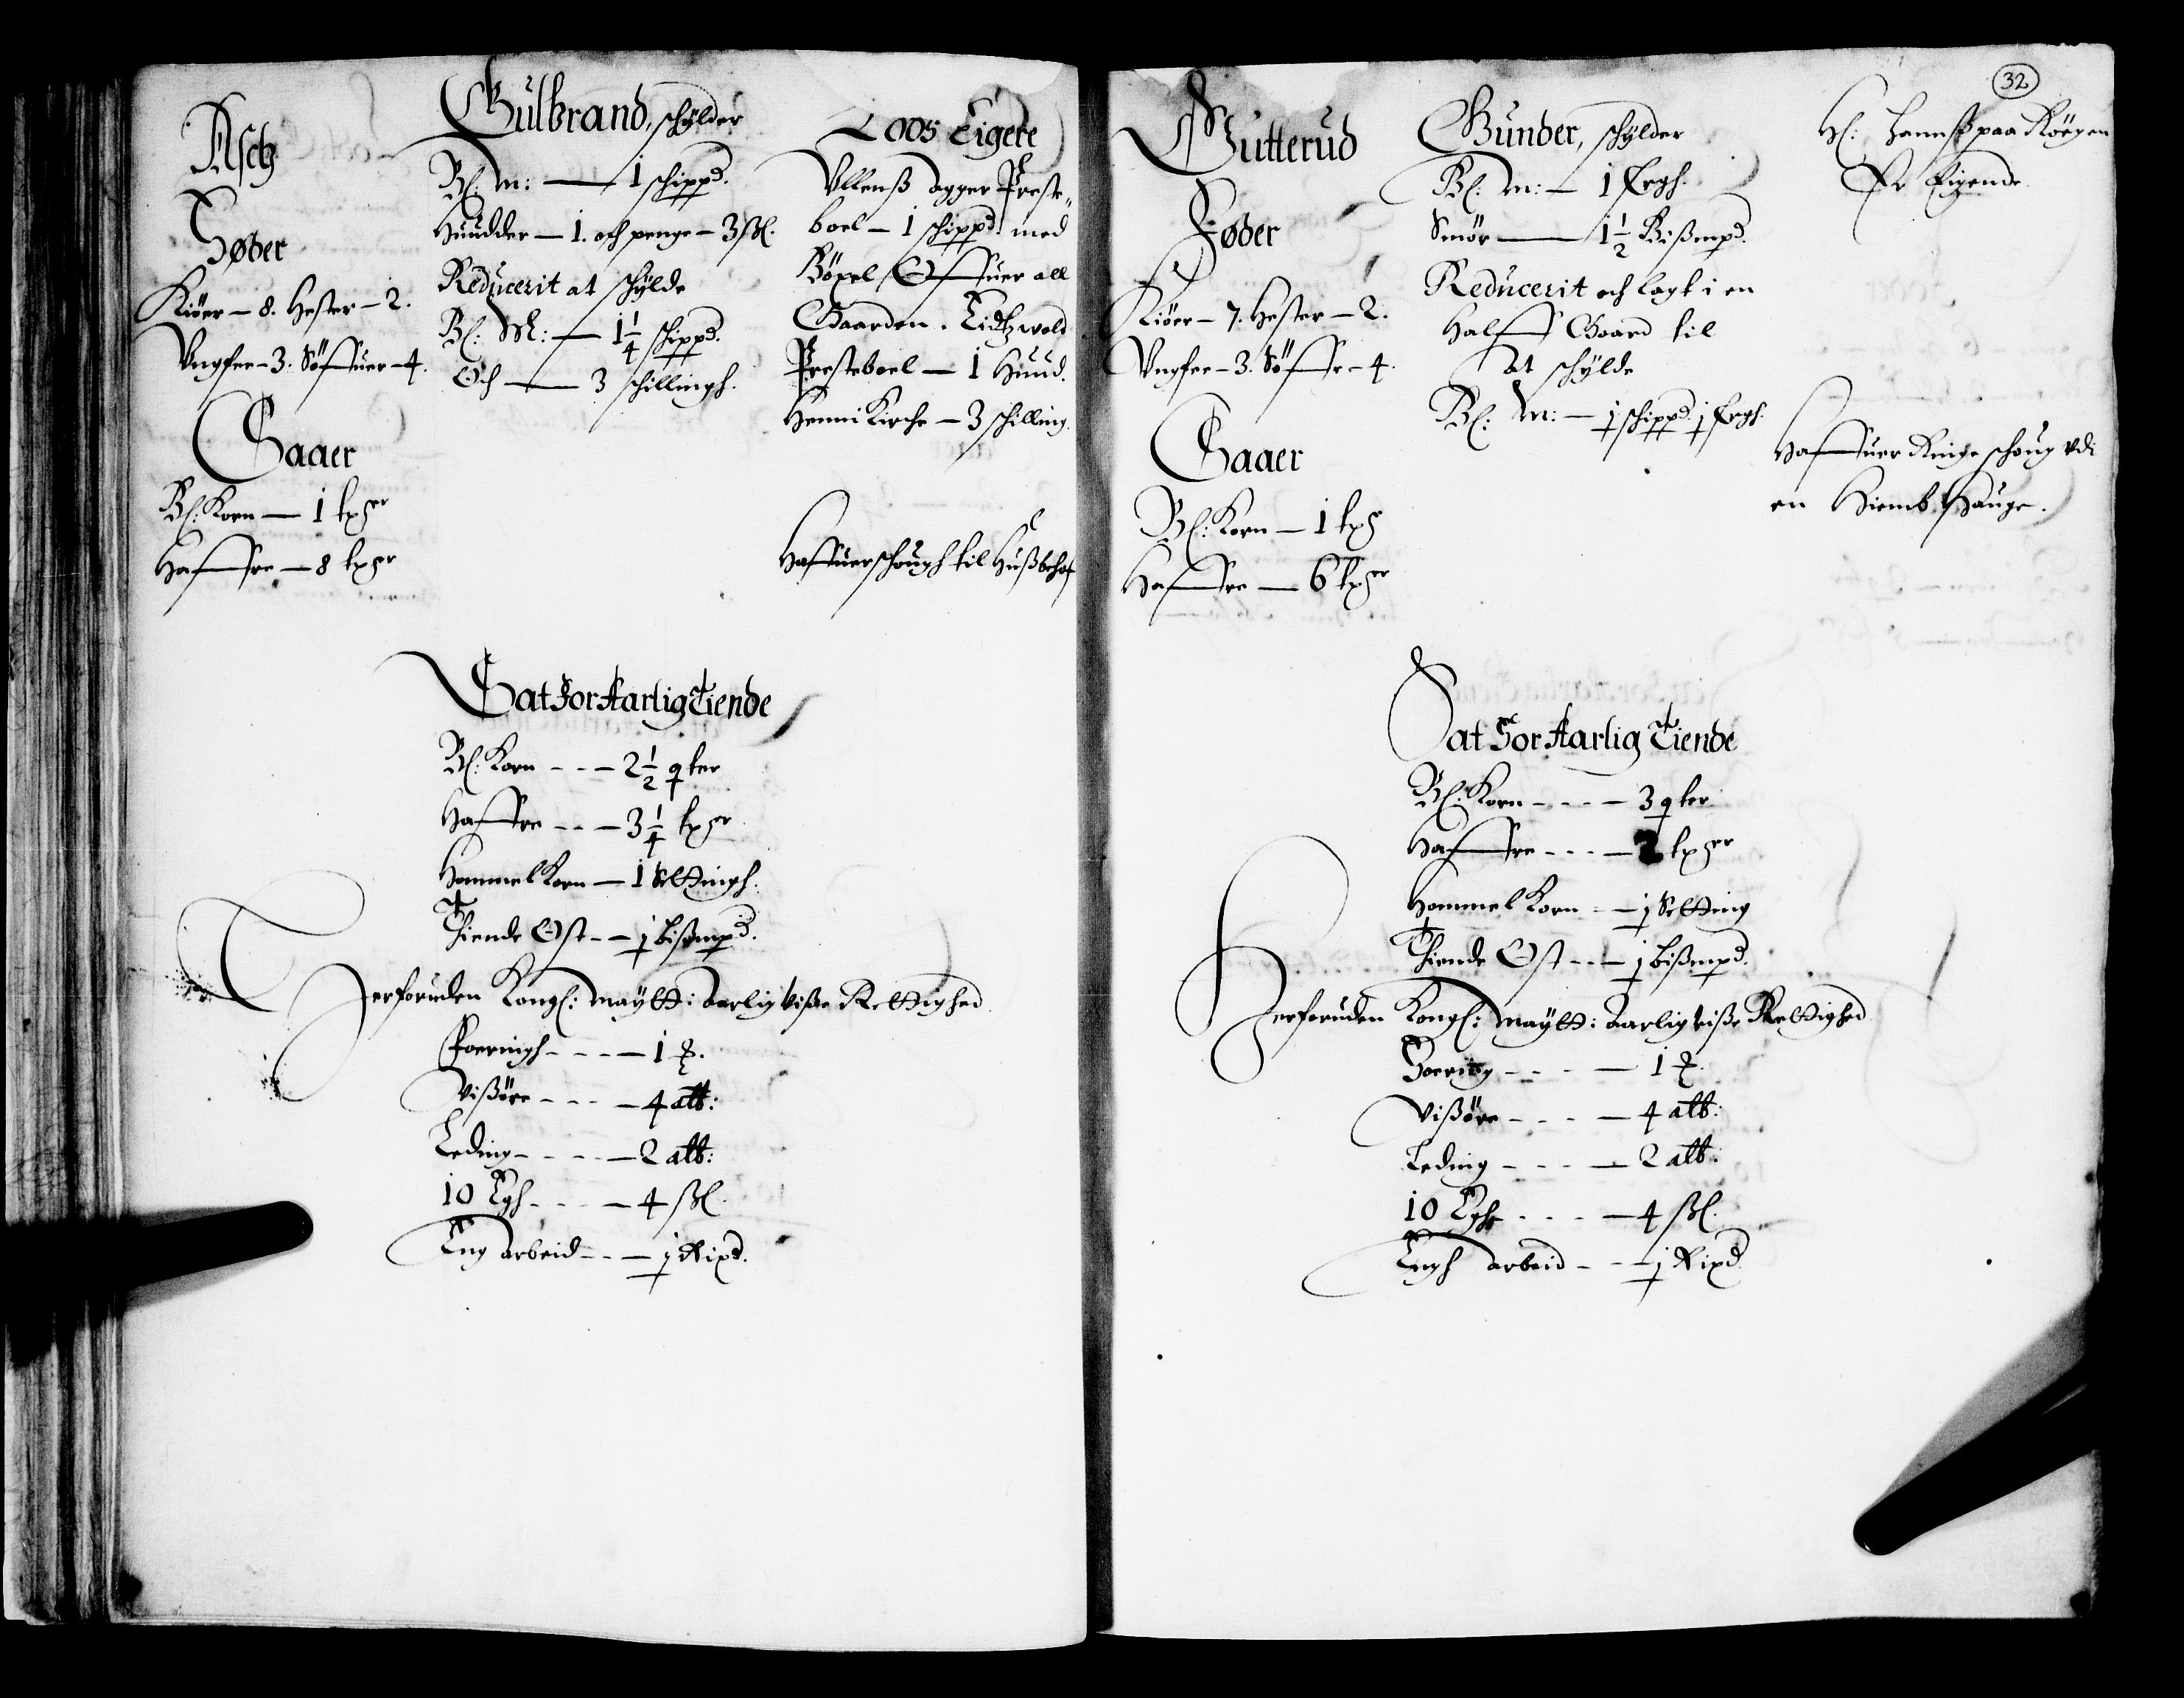 Asch
Føder
Kiøer - 8. Hester - 2.
Vngfee - 3. Søffuer - 4.
Saaer
Bl: Korn - 1 tyr
Haffre - 8 tyr
Gulbrand, schylder
Bl: m: - 1 schippd.
Huudder - 1. och penge - 3 ßl.
Reducerit at schylde
Bl: M: - 1 1/4 schippd.
Och - 3 schillingh.
Loos Eigere
Vllensß agger Preste„
boel - 1 schippd. med
Böxel Offuer all
Gaarden. Eidtzwold
Presteboel - 1 Huud.
Henni Kirche - 3 schilling.
Haffuer schough til Hußbehof
Sat For Aarlig Tiende
Bl: Korn - - - 2 1/2 qter
Haffre - - - 3 1/4 tyr
Hommel Korn - 1 Settingh.
Thiende Ost - - 1 bißmpd.
Derforuden Kongl: maytt: Aarlig visse Rettighed.
Foeringh - - - 1 
Visøre - - - 4 alb:
Leding - - - 2 alb:
10 Egh - - - 4 ßl.
Eng arbeid - - 1 Rixd.
32
Gutterud
Føder
Kiöer - 7. Hester - 2.
Vngfee - 3. Söffr - 4.
Saaer
Bl: Korn - 1 ty
Haffre - 6 tyr
Gunder, schylder
Bl: m: - 1 frgh.
Smör - 1 1/2 Bißmpd.
Reducerit och lagt i en
Halff Gaard til
At schylde
Bl: m: - 1 schippd. 1 frgh.
Hl: Hannß paa Röegen
Er Eigende
Haffuer Ringe schoug vdi
en Hiemb Hauge.
Sat For Aarlig Tiende
Bl: Korn - - - - 3 qter
Haffre - - - 2 tyr
Hommel Korn - - 1 Setting
Thiende Ost - - - 1 bißmpd.
Derforuden Kongl: maytt: Aarlig visse Rettighed
Foering - - - 1 
Visøre - - - 4 alb:
Leding - - - 2 alb:
10 Egh - - - 4 ßl.
Engh arbeid - - 1 Rixd.